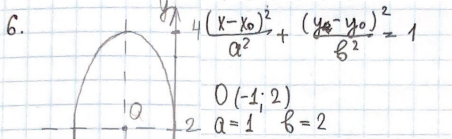 6.
y
4
(x-x₀)²/a² + (y-y₀)²/b² = 1
O
2
O(-1; 2)
a=1 b=2